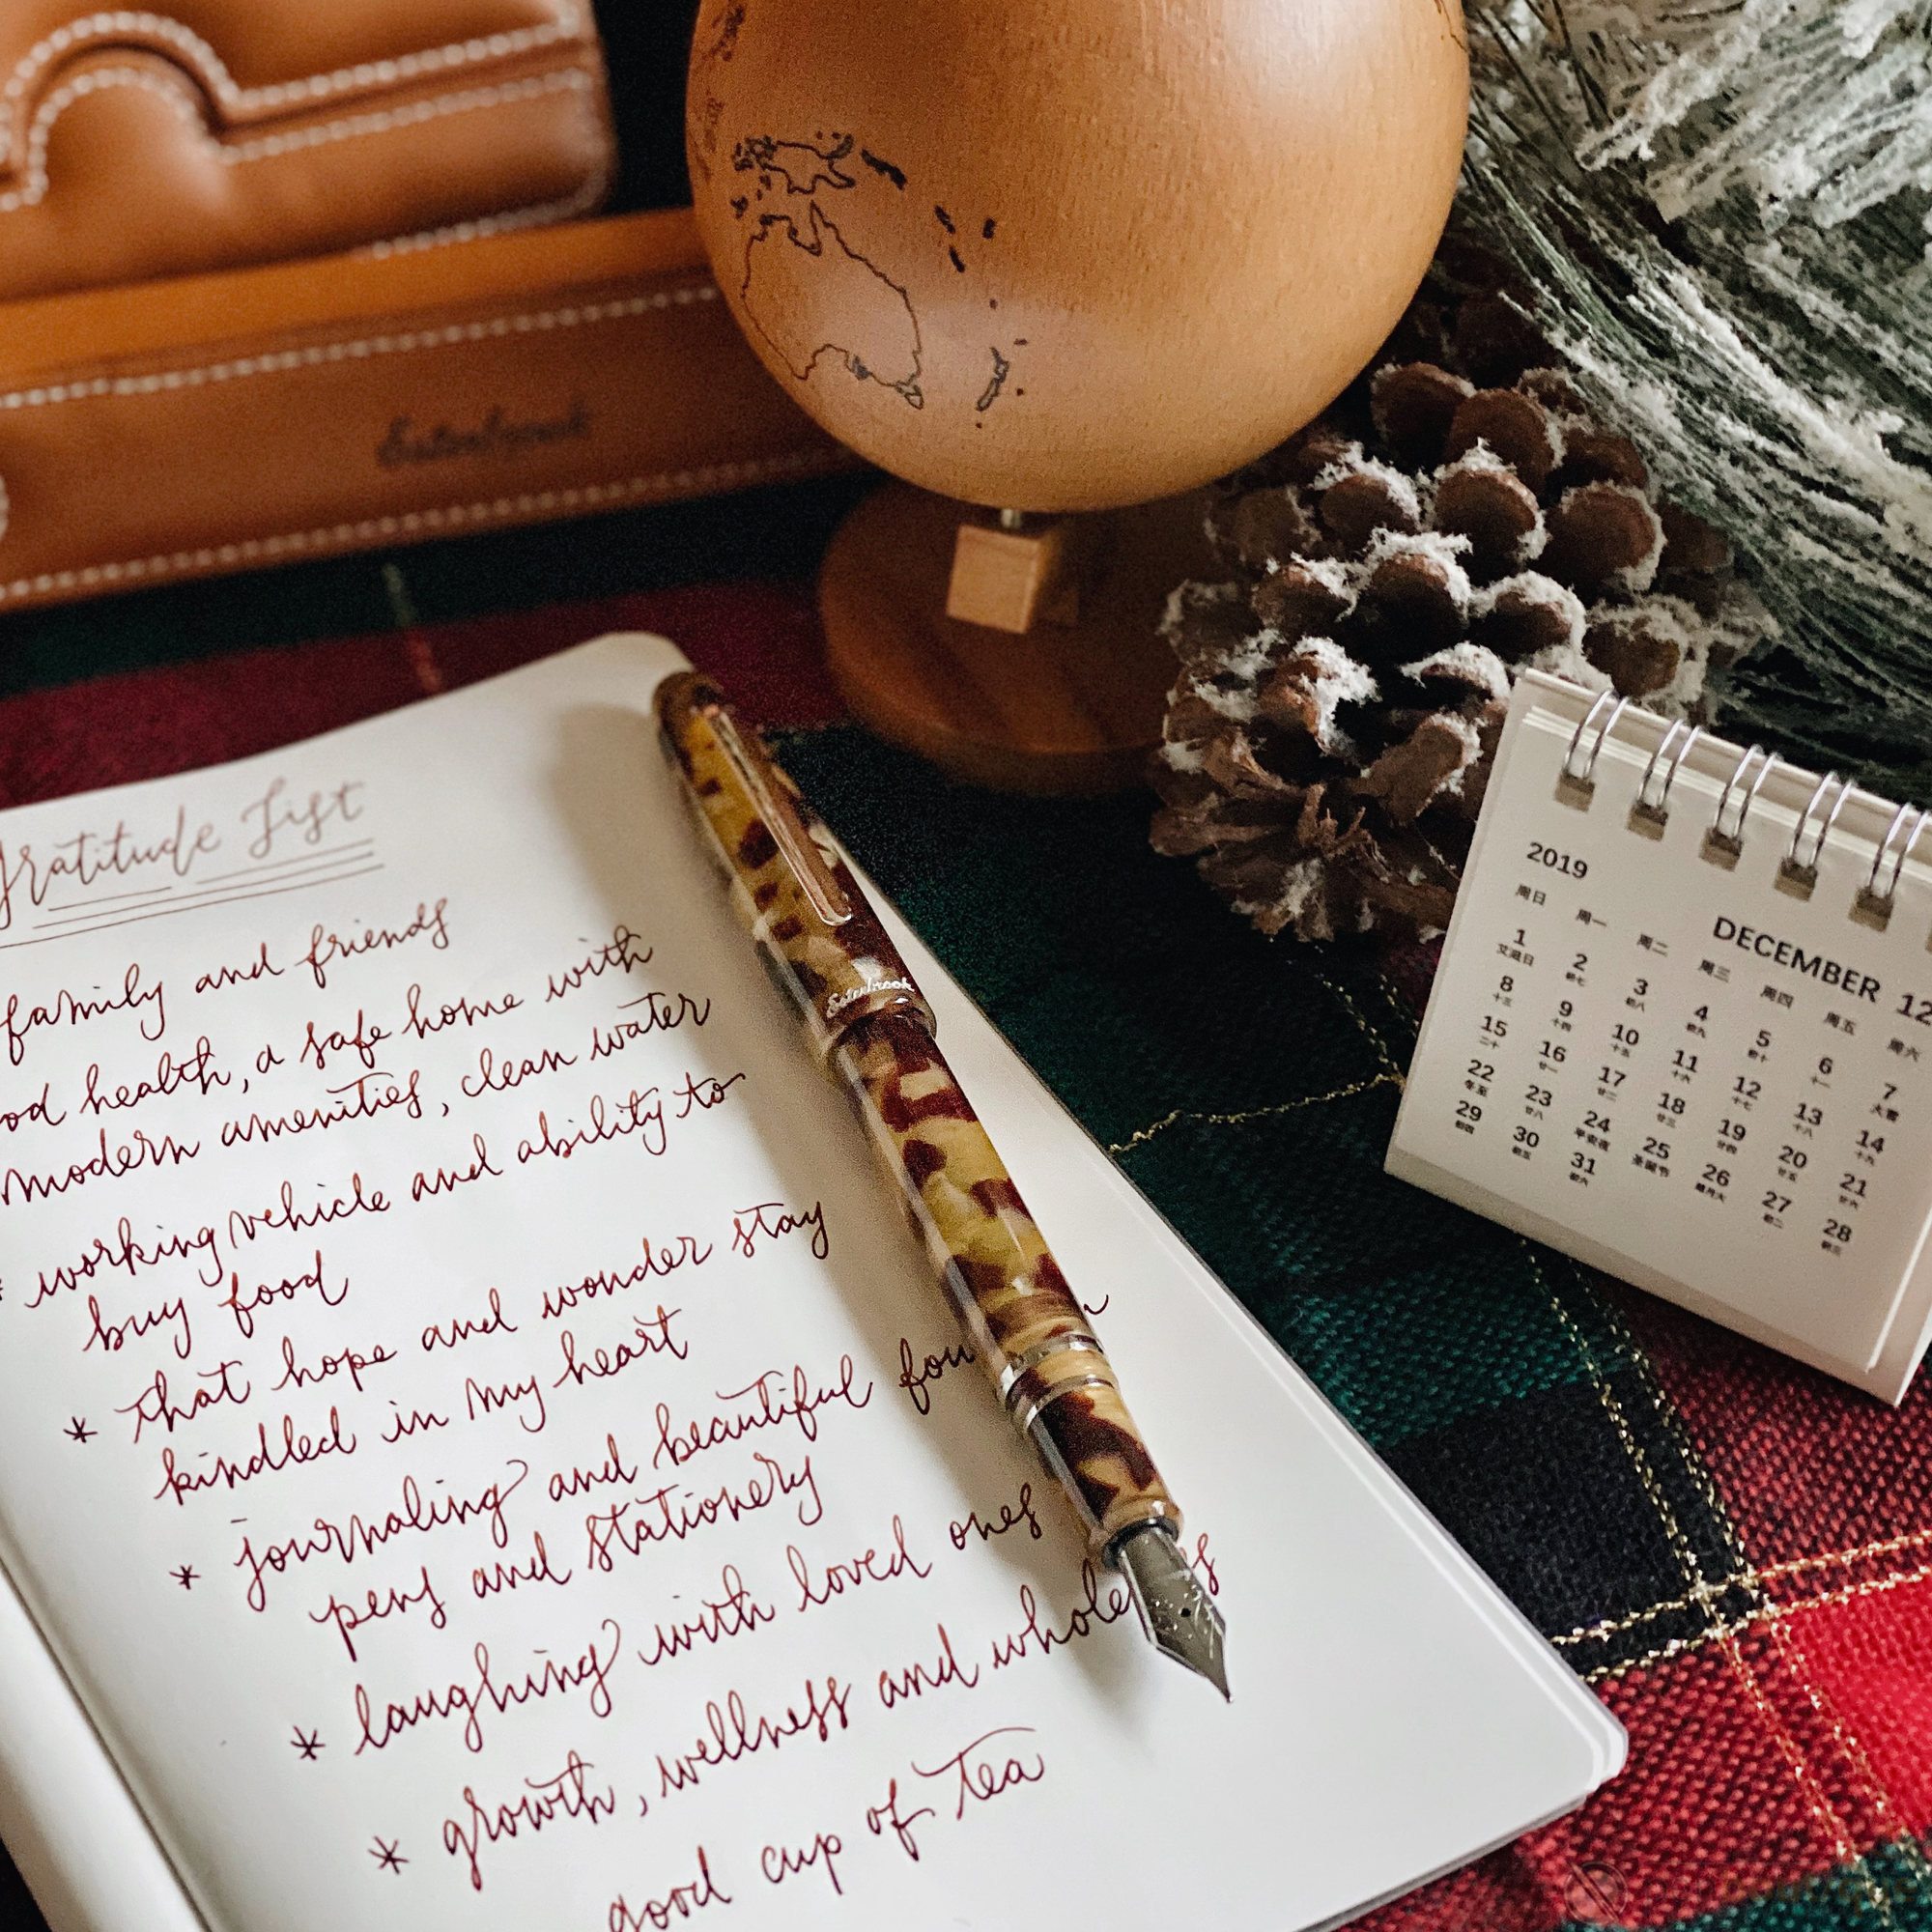 Esterbrook
Gratitude List
family and friends
good health, a safe home with
modern amenities, clean water
* working vehicle and ability to
buy food
* that hope and wonder stay
kindled in my heart
* journaling and beautiful foun
pens and stationery
* laughing with loved ones
* growth, wellness and wholeness
good cup of tea
Esterbrook
2019
DECEMBER 12
周日 周一 周二 周三 周四 周五 周六
1 2 3 4 5 6 7
艾滋日 初七 初八 初九 初十 十一 大雪
8 9 10 11 12 13 14
十三 十四 十五 十六 十七 十八 十九
15 16 17 18 19 20 21
二十 廿一 廿二 廿三 廿四 廿五 廿六
22 23 24 25 26 27 28
冬至 廿八 平安夜 圣诞节 初二 初三
29 30 31
初四 初五 初六